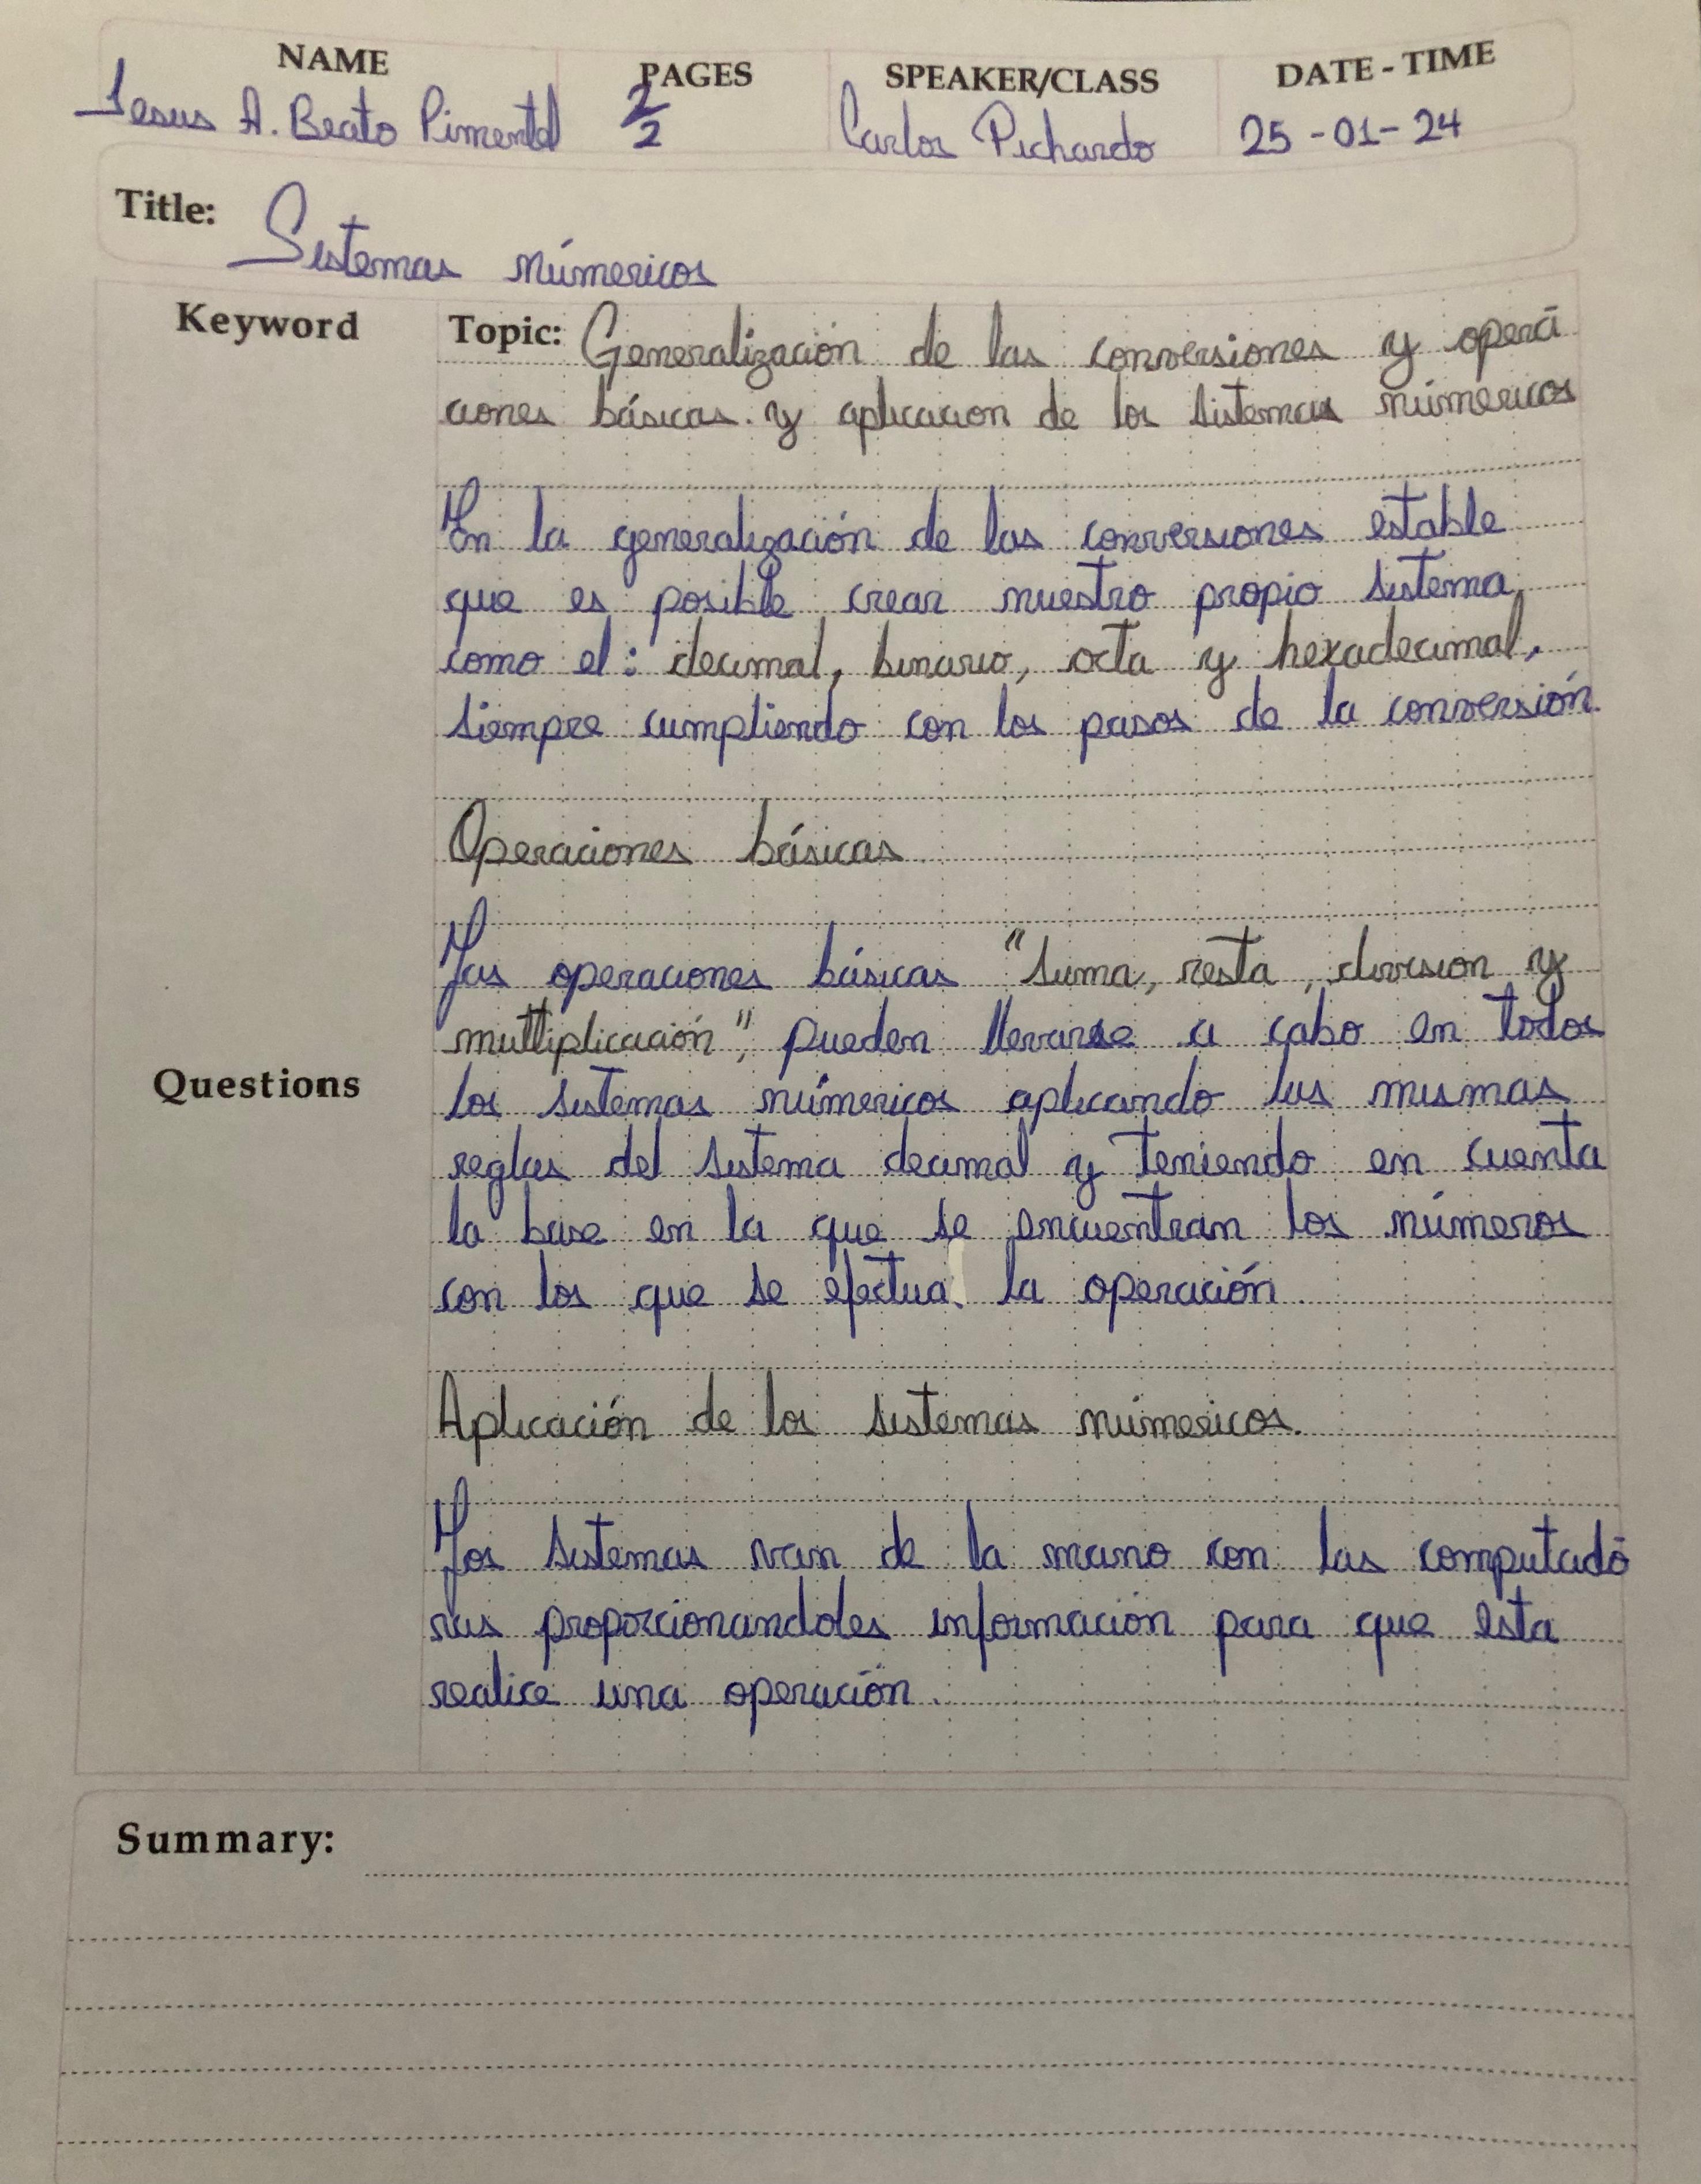 NAME PAGES SPEAKER/CLASS DATE - TIME
Jesus A. Beato Pimentel 2/2 Carlos Pichardo 25 - 01 - 24
Title: Sistemas númericos
Keyword
Topic: Generalización de las conversiones y opera
ciones básicas. y aplicacion de los sistemas númericos
En la generalización de las conversiones estable
que es posible crear nuestro propio sistema
como el: decimal, binario, octa y hexadecimal,
siempre cumpliendo con los pasos de la conversión.
Operaciones básicas
Las operaciones básicas "suma, resta, division y
multiplicación", pueden llevarse a cabo en todos
Questions
los sistemas númericos aplicando las mismas
reglas del sistema decimal y teniendo en cuenta
la base en la que se encuentran los números
con los que se efectua la operación
Aplicación de los sistemas númericos.
Los sistemas van de la mano con las computado
ras proporcionandoles información para que esta
realice una operación.
Summary: